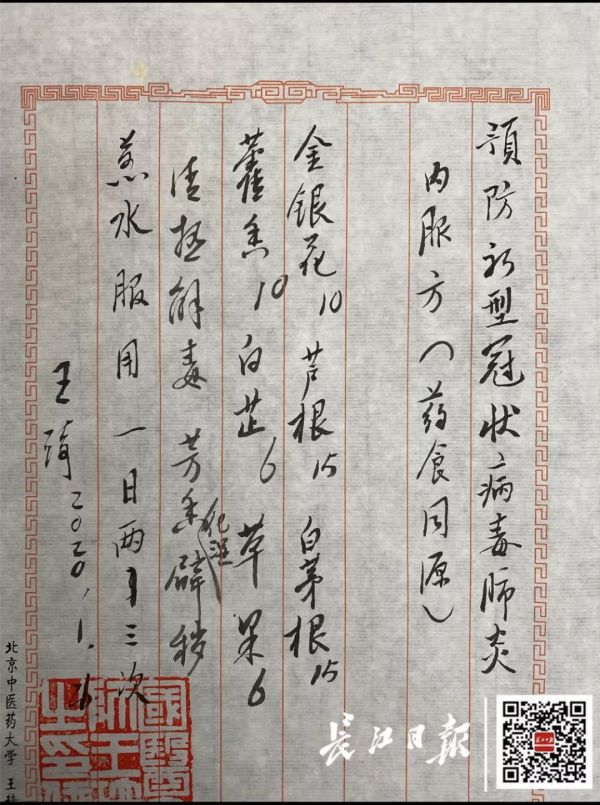 预防新型冠状病毒肺炎
内服方（药食同源）
金银花10 芦根15 白茅根15
藿香10 白芷6 草果6
清热解毒 芳香化湿辟秽
煎水服用 一日两～三次
王琦 二〇二〇.1.26
北京中医药大学 王琦
長江日報